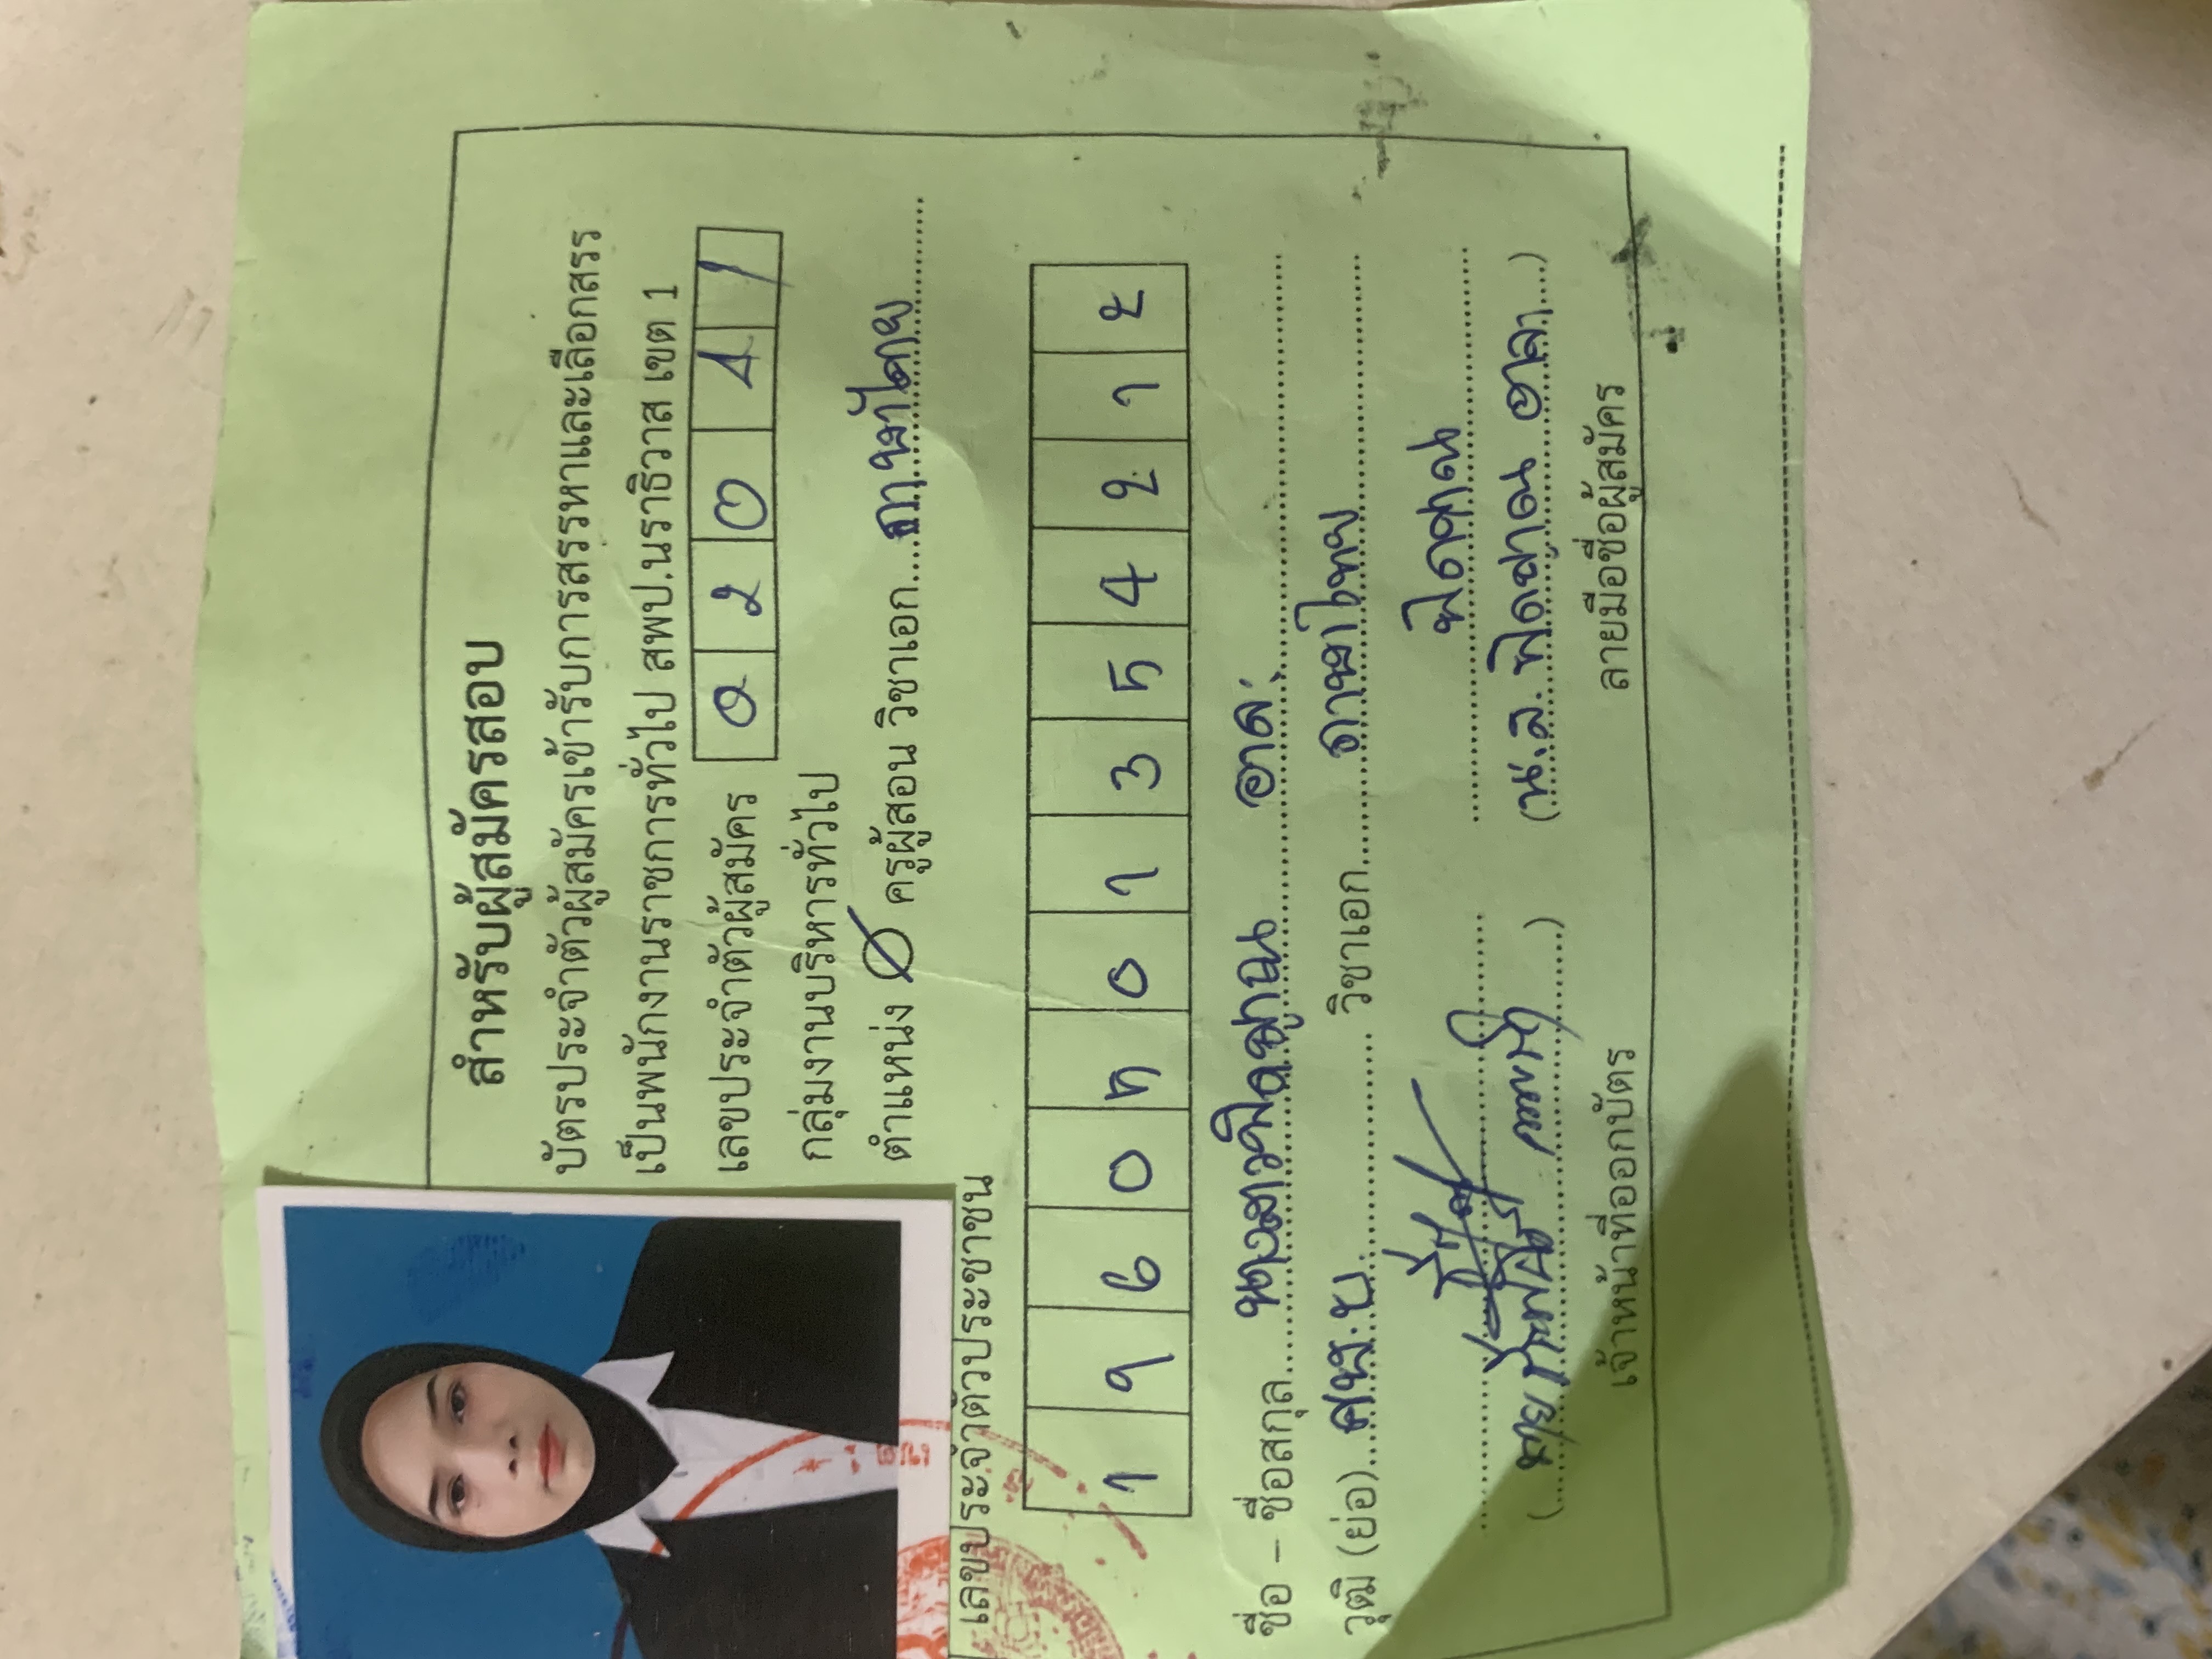 สำหรับผู้สมัครสอบ
บัตรประจำตัวผู้สมัครเข้ารับการสรรหาและเลือกสรร
เป็นพนักงานราชการทั่วไป สพป.นราธิวาส เขต 1
เลขประจำตัวผู้สมัคร 0 2 0 4 1
กลุ่มงานบริหารทั่วไป
ตำแหน่ง ครูผู้สอน วิชาเอก ภาษาไทย
เลขประจำตัวประชาชน
1 9 6 0 5 0 1 3 5 4 2 1 2
ชื่อ - ชื่อสกุล นางสาว
วุฒิ (ย่อ) ศษ.บ. วิชาเอก ภาษาไทย
เจ้าหน้าที่ออกบัตร ลายมือชื่อผู้สมัคร